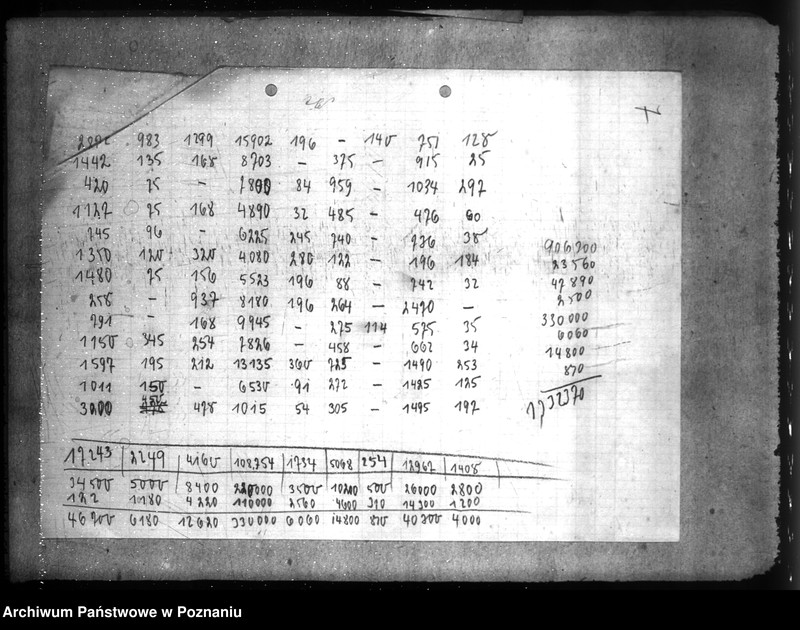 983 1299 15902 196 - 140 751 128
1442 135 168 8703 - 375 - 915 25
420 75 - 84 959 - 1034 297
1127 75 168 4890 32 485 - 476 60
745 96 - 6225 245 740 - 736 38
1350 120 320 4080 280 122 - 196 184
1480 75 156 5523 196 88 - 742 32
258 - 937 8180 196 264 - 2470 -
791 - 168 9945 - 275 114 575 35
1150 345 254 7826 - 458 - 662 34
1597 195 212 13135 360 725 - 1490 253
1011 150 - 6530 91 272 - 1425 125
3200 450 478 1015 54 305 - 1495 192
906700
23560
47890
2500
330000
6060
14800
870
1732370
17243 2249 4160 108,754 1734 5068 254 12967 1408
34500 5000 8400 220000 3500 10200 500 26000 2800
1180 4220 110000 2560 4600 370 14300 1200
46700 6180 12620 330000 6060 14800 870 40300 4000
Archiwum Państwowe w Poznaniu